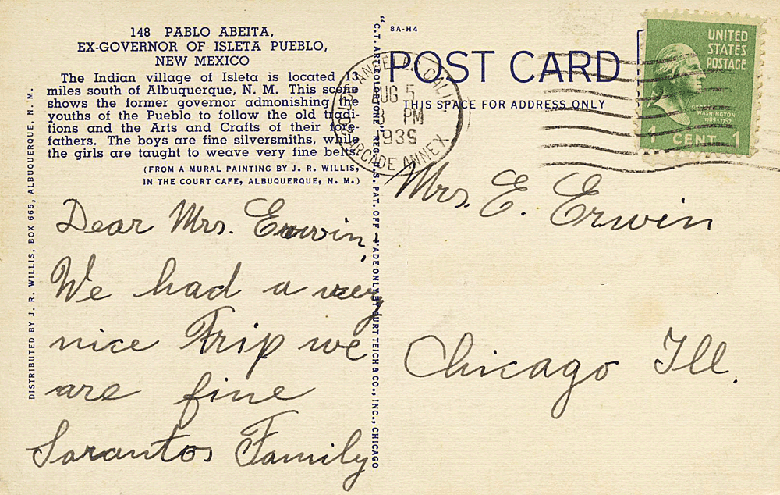 148 PABLO ABEITA,
EX-GOVERNOR OF ISLETA PUEBLO,
NEW MEXICO
The Indian village of Isleta is located 13
miles south of Albuquerque, N. M. This scene
shows the former governor admonishing the
youths of the Pueblo to follow the old tradi-
tions and the Arts and Crafts of their fore-
fathers. The boys are fine silversmiths, while
the girls are taught to weave very fine belts.
(FROM A MURAL PAINTING BY J. R. WILLIS,
IN THE COURT CAFE, ALBUQUERQUE, N. M.)
DISTRIBUTED BY J. R. WILLIS, BOX 665, ALBUQUERQUE, N. M.
Dear Mrs. Erwin,
We had a very
nice Trip we
are fine
Sarantos Family
"C.T. ART-COLORTONE" REG. U.S. PAT. OFF. MADE ONLY BY CURT TEICH & CO., INC., CHICAGO
8A-H4
POST CARD
THIS SPACE FOR ADDRESS ONLY
LOS ANGELES, CALIF.
AUG 5
3 PM
1939
ARCADE ANNEX
UNITED
STATES
POSTAGE
WASHINGTON
1 CENT 1
Mrs. E. Erwin
Chicago Ill.